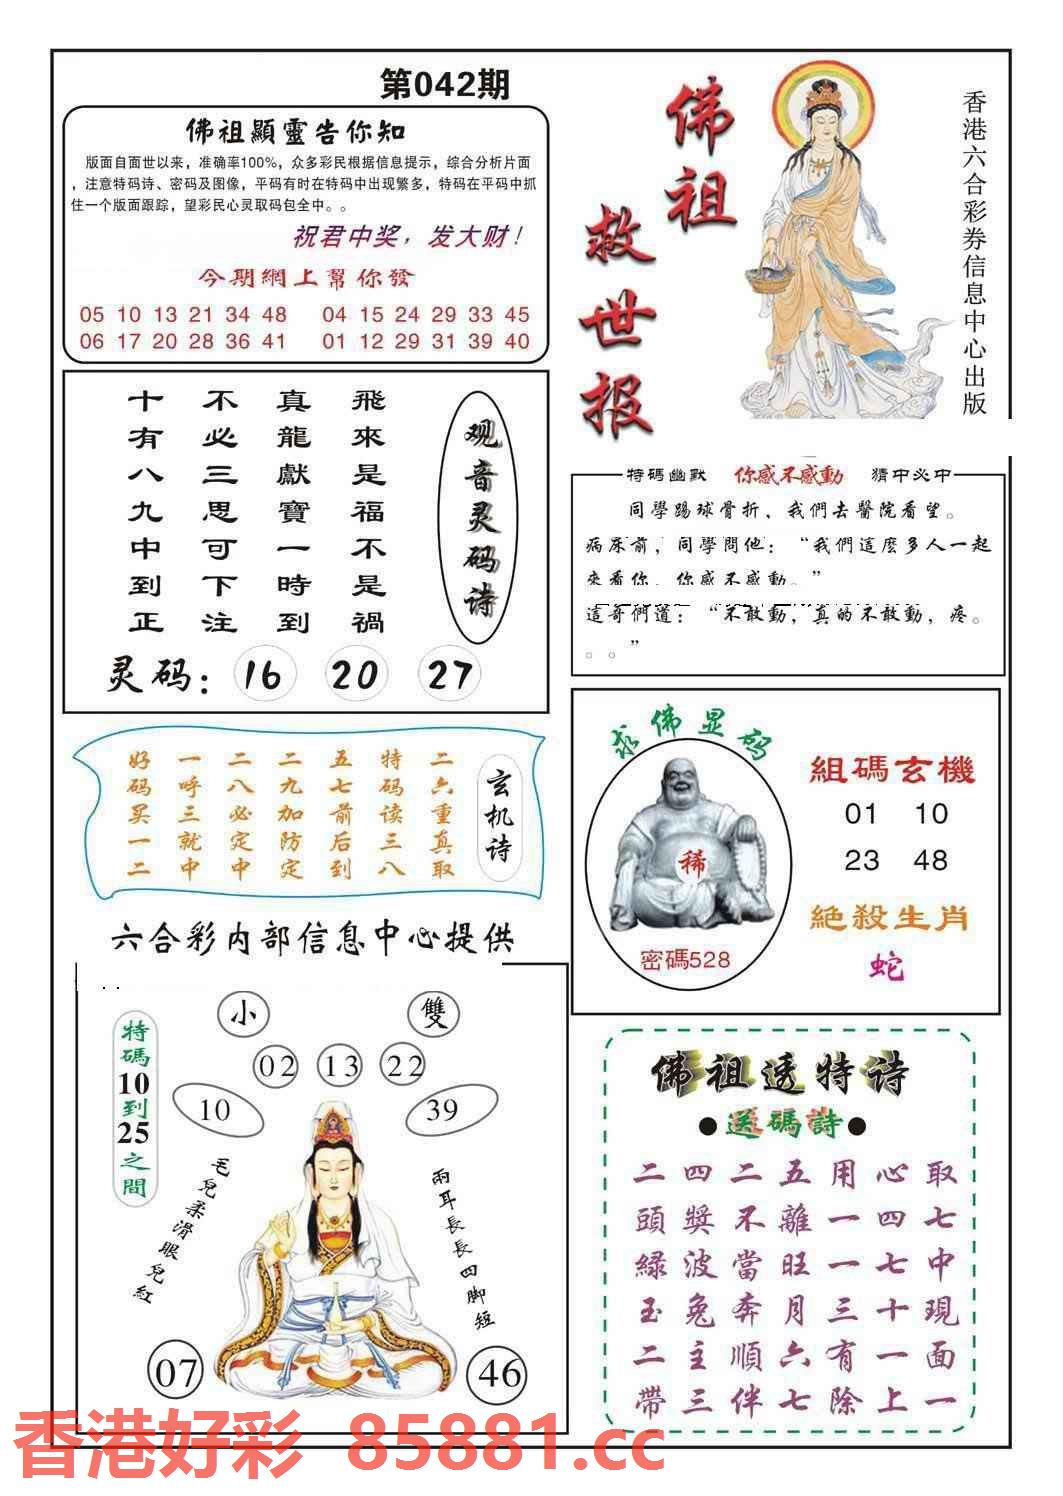 第042期
佛祖顯靈告你知
版面自面世以来，准确率100%，众多彩民根据信息提示，综合分析片面
，注意特码诗、密码及图像，平码有时在特码中出现繁多，特码在平码中抓
住一个版面跟踪，望彩民心灵取码包全中。。
祝君中奖，发大财！
今期網上幫你發
05 10 13 21 34 48 04 15 24 29 33 45
06 17 20 28 36 41 01 12 29 31 39 40
佛祖
救世报
香港六合彩券信息中心出版
观音灵码诗
飛來是福不是禍
真龍獻寶一時到
不必三思可下注
十有八九中到正
灵码：16 20 27
特碼幽默 你感不感動 猜中必中
同學踢球骨折，我們去醫院看望。
病床前，同學問他：“我們這麽多人一起
來看你，你感不感動。”
這哥們道：“不敢動，真的不敢動，疼。
。。”
玄机诗
二六重真取
特码读三八
五七前后到
二九加防定
二八必定中
一呼三就中
好码买一二
求佛显码
稀
密碼528
組碼玄機
01 10
23 48
絕殺生肖
蛇
六合彩内部信息中心提供
特碼10到25之間
小
雙
02 13 22
10
39
毛兒柔滑眼兒紅
兩耳長長四脚短
07
46
佛祖透特诗
●送碼詩●
二四二五用心取
頭獎不離一四七
緑波當旺一七中
玉兔奔月三十現
二主順六有一面
帶三伴七除上一
香港好彩 85881.cc